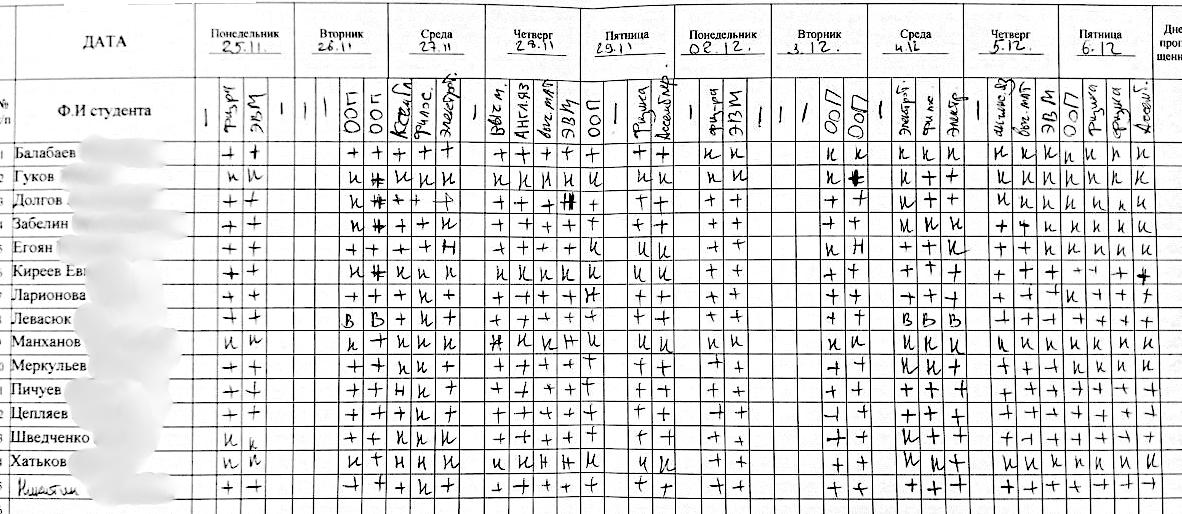 ДАТА Понедельник 25.11. Вторник 26.11 Среда 27.11 Четверг 28.11 Пятница 29.11 Понедельник 02.12. Вторник 3.12. Среда 4.12 Четверг 5.12. Пятница 6.12 Дне
проп
щенн
№
п/п Ф.И студента физра ЭВМ ООП ООП Ассембл Филос. Электрот. Выч м. Англ.яз выч.мат ЭВМ ООП Физика Ассемблер. физ-ра ЭВМ ООП ООП Электрот. Фил Электр. выч.мат ЭВМ ООП Физика Физика Ассемб.
1 Балабаев + + + + + + + + + + + + + + н н н н н н н н н н н н н н
2 Гуков н н н н н н н н н н н н н н н н н + + н н н н н н н
3 Долгов + + н + + + + + + + + + + + + + н + + н н н н н н н
4 Забелин + + н + + н + + + + + + + + + + + н н н + + н н н н н
5 Егоян + + + + + + н + + + + н н н + + н н + + н + + н н н н н
6 Киреев Евг + + н н н н н н н н н н н + + + + + + + + + + + + + +
7 Ларионова + + + + + н + + + + + н + + + + + + + + + + + + н + + +
8 Левасюк + + В В + н + + + + + + + + + + + + В В В + + + + + + +
9 Манханов н н н + н н н н н н н н н н н н н н н н н н н н н н н
10 Меркульев + + + + + н + + + + + + + + + + + + н н + + + + н н н н
11 Пичуев + + + + н н + + + + + + + + + + + + + + + + + + + + + +
12 Цепляев + + + + + н + + + + + + + + + + + + + + + + + + + + + +
13 Шведченко н н + + н н н + + + + + + + + + + + н + + + + + + + + +
14 Хатьков н н н + н н н н н н н н н н + + + + н н + н н н н н н н
15 + + + + + н + + + + + + + + + + + + + + + + + + + + + +